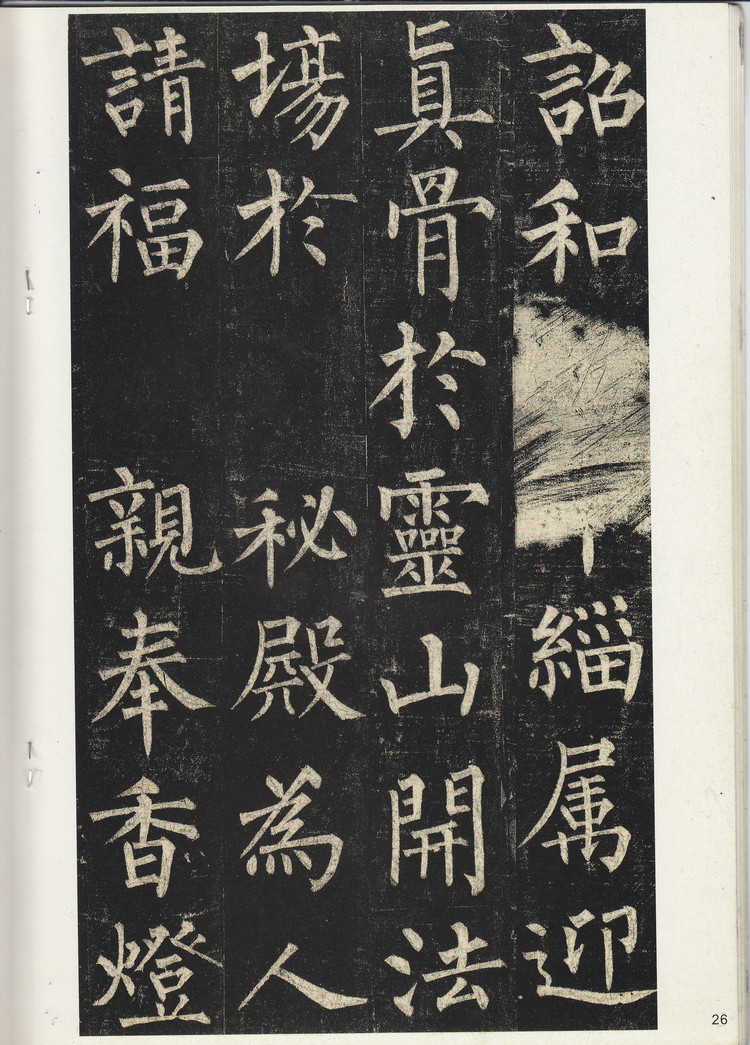 詔和緇属迎
眞骨於靈山開法
塲於 秘殿為人
請福 親奉香燈
26